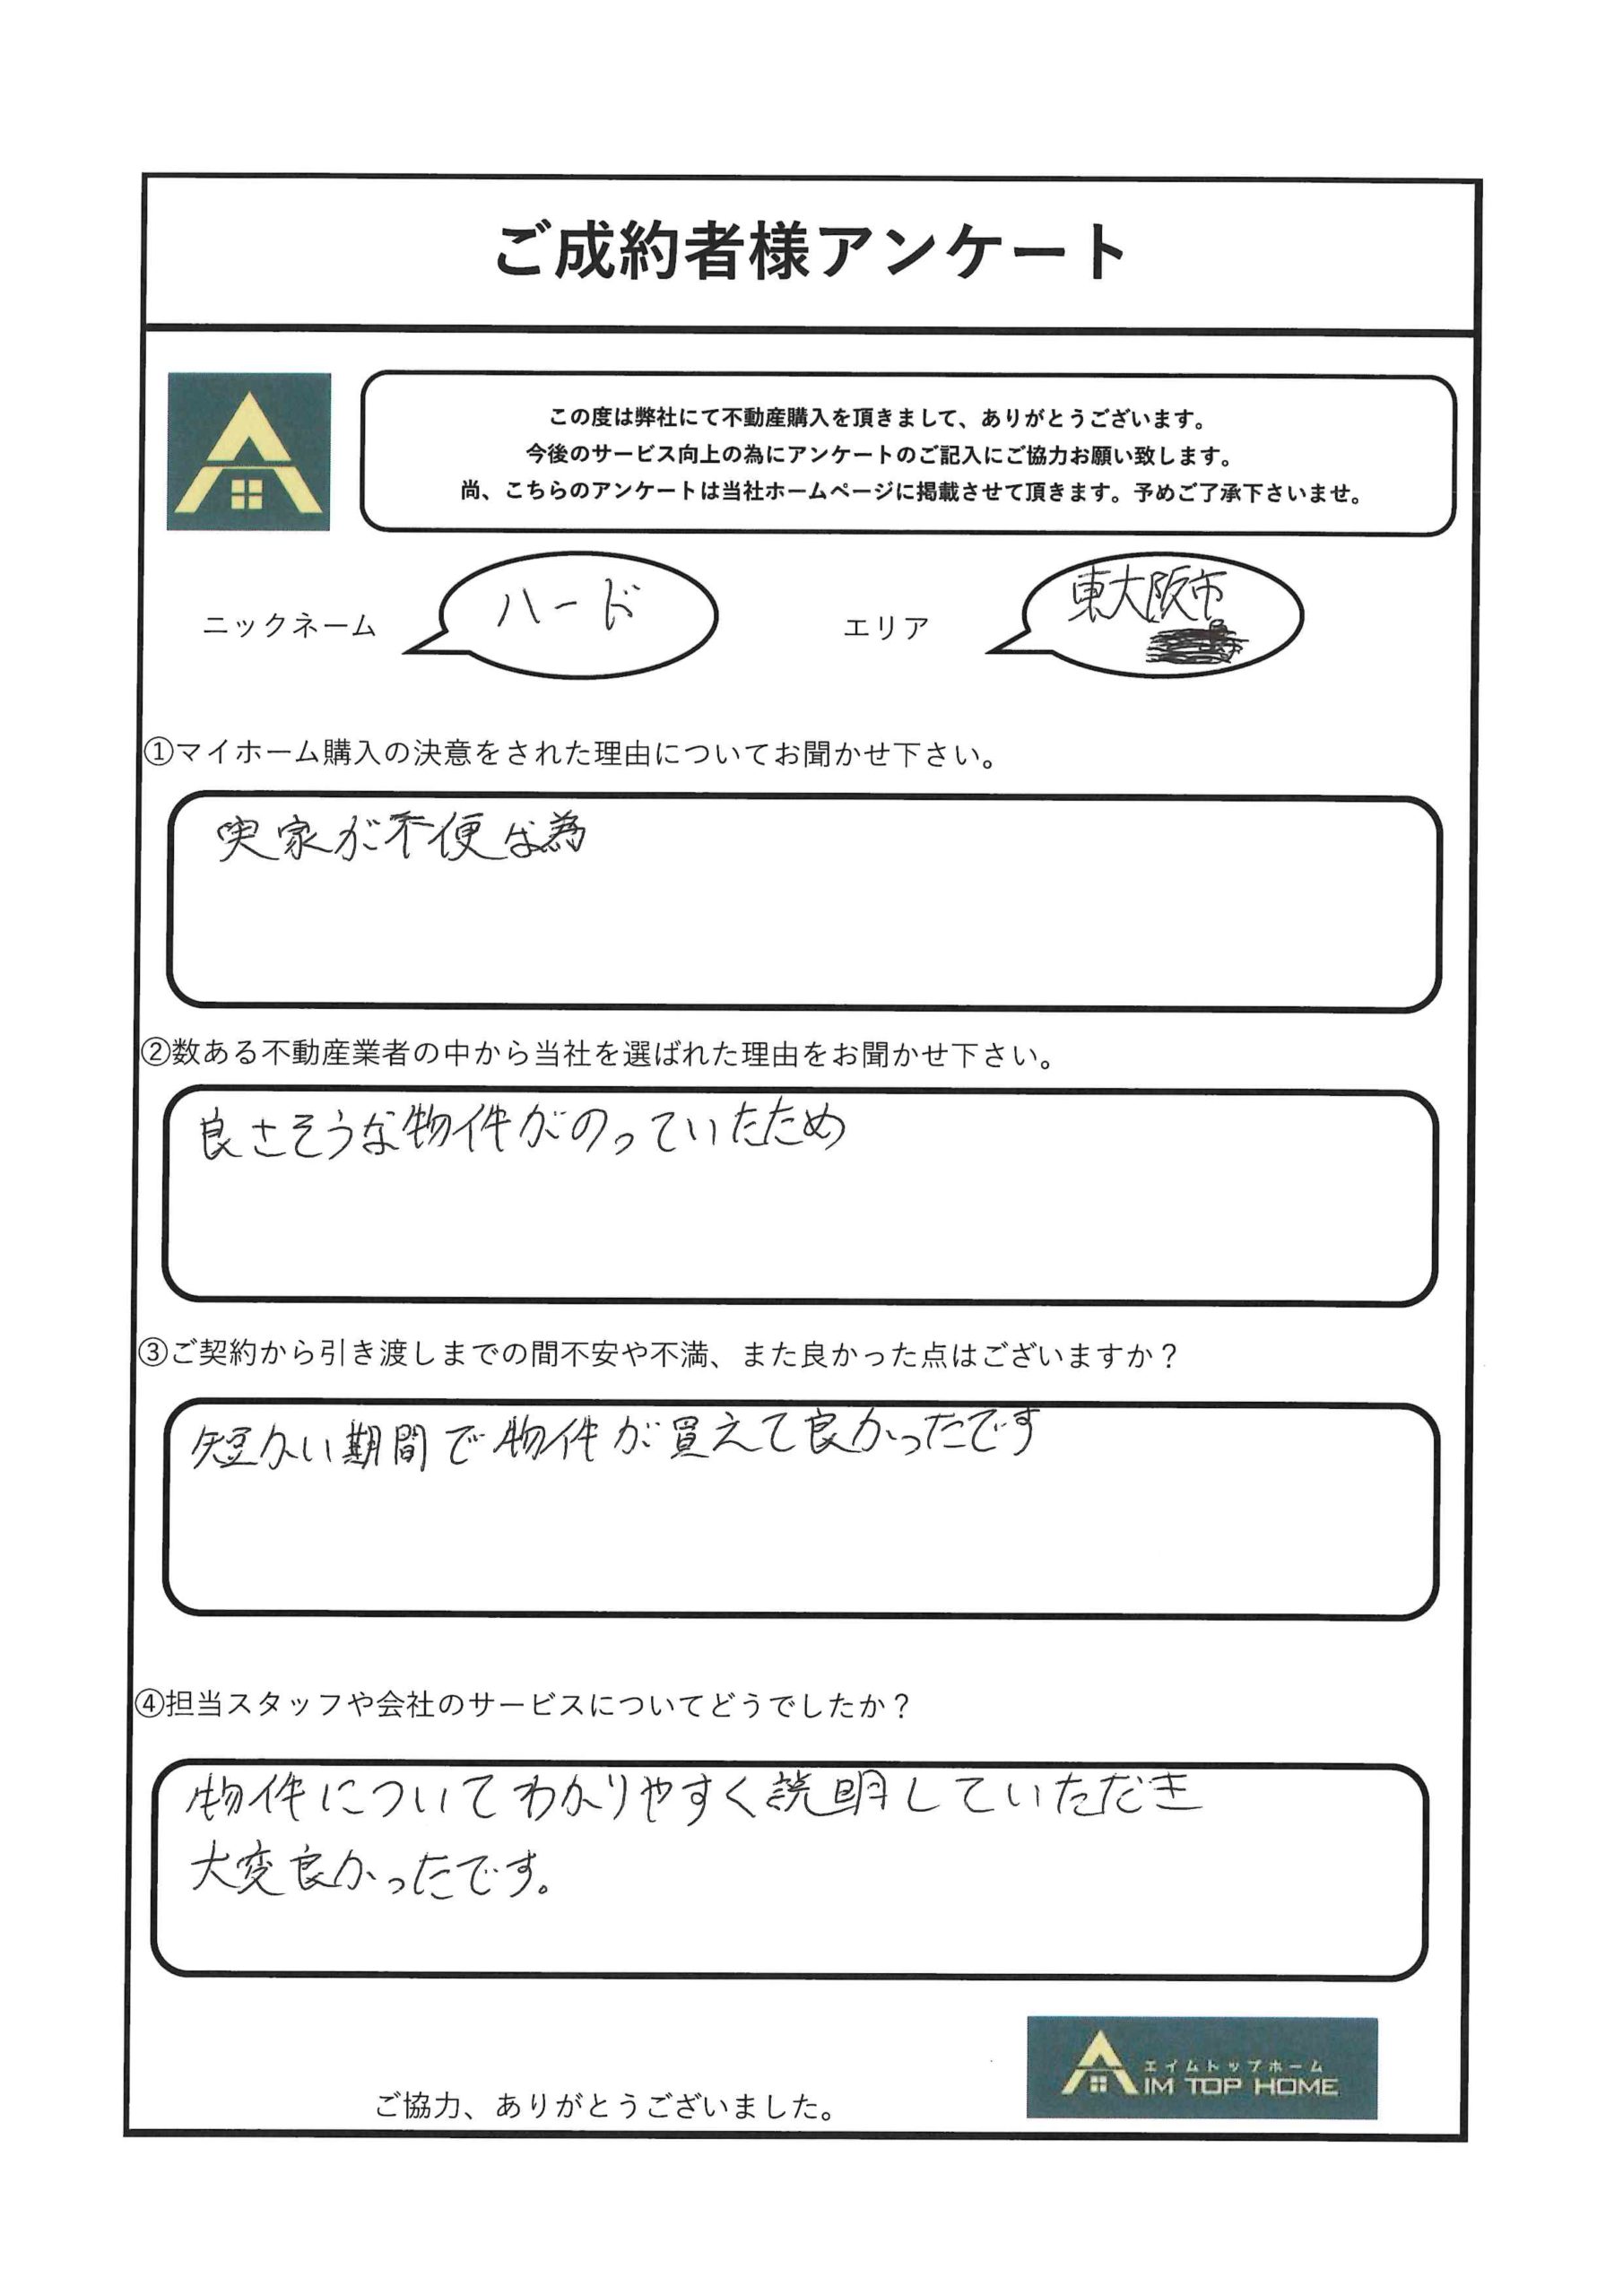 ご成約者様アンケート
この度は弊社にて不動産購入を頂きまして、ありがとうございます。
今後のサービス向上の為にアンケートのご記入にご協力お願い致します。
尚、こちらのアンケートは当社ホームページに掲載させて頂きます。予めご了承下さいませ。
ニックネーム
ハード
エリア
東大阪市
①マイホーム購入の決意をされた理由についてお聞かせ下さい。
実家が不便な為
②数ある不動産業者の中から当社を選ばれた理由をお聞かせ下さい。
良さそうな物件がのっていたため
③ご契約から引き渡しまでの間不安や不満、また良かった点はございますか？
短かい期間で物件が買えて良かったです
④担当スタッフや会社のサービスについてどうでしたか？
物件についてわかりやすく説明していただき
大変良かったです。
エイムトップホーム
AIM TOP HOME
ご協力、ありがとうございました。